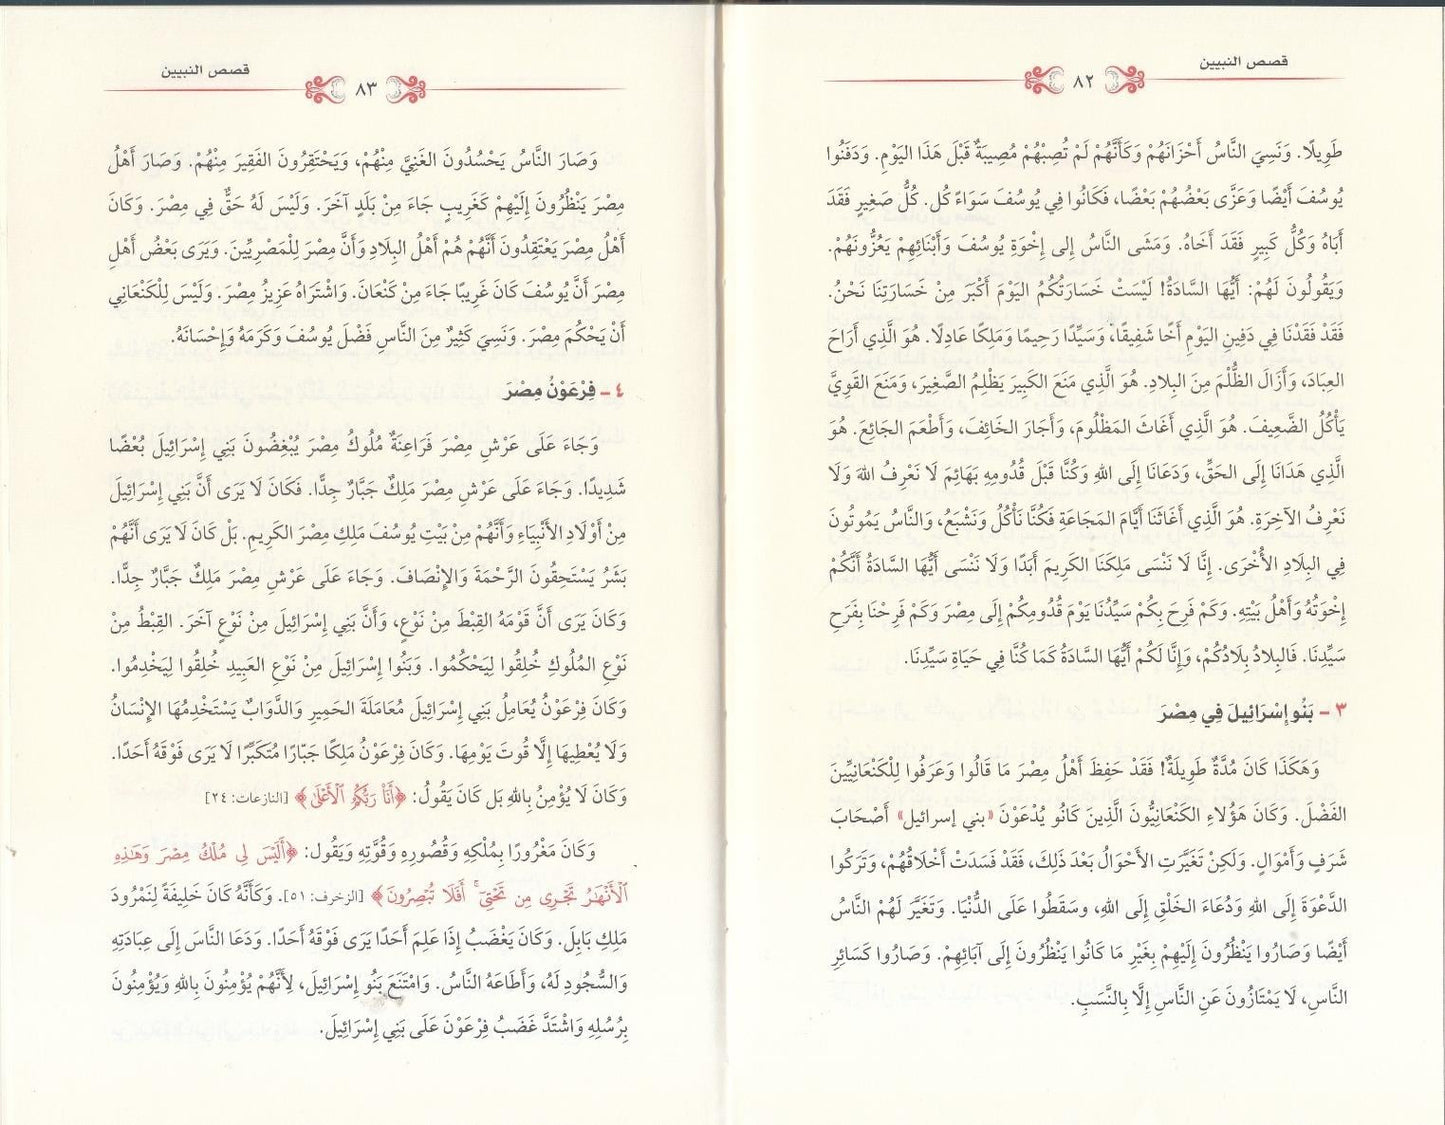 قصص النبيين
٨٢
طَوِيلًا. وَنَسِيَ النَّاسُ أَحْزَانَهُمْ وَكَأَنَّهُمْ لَمْ تُصِبْهُمْ مُصِيبَةٌ قَبْلَ هَذَا اليَوْمِ. وَدَفَنُوا
يُوسُفَ أَيْضًا وَعَزَّى بَعْضُهُمْ بَعْضًا، فَكَانُوا فِي يُوسُفَ سَوَاءً كُل. كُلُّ صَغِيرٍ فَقَدَ
أَبَاهُ وَكُلُّ كَبِيرٍ فَقَدَ أَخَاهُ. وَمَشَى النَّاسُ إِلى إِخْوَةِ يُوسُفَ وَأَبْنَائِهِمْ يَعُزُّونَهُمْ.
وَيَقُولُونَ لَهُمْ: أَيُّهَا السَّادَةُ! لَيْسَتْ خَسَارَتُكُمُ اليَوْمَ أَكْبَرَ مِنْ خَسَارَتِنَا نَحْنُ.
فَقَدْ فَقَدْنَا فِي دَفِينِ اليَوْمِ أَخًا شَفِيقًا، وَسَيِّدًا رَحِيمًا وَمَلِكًا عَادِلًا. هُوَ الَّذِي أَرَاحَ
العِبَادَ، وَأَزَالَ الظُّلْمَ مِنَ البِلادِ. هُوَ الَّذِي مَنَعَ الكَبِيرَ يَظْلِمُ الصَّغِيرَ، وَمَنَعَ القَوِيَّ
يَأْكُلُ الضَّعِيفَ. هُوَ الَّذِي أَغَاثَ المَظْلُومَ، وَأَجَارَ الخَائِفَ، وَأَطْعَمَ الجَائِعَ. هُوَ
الَّذِي هَدَانَا إِلَى الحَقِّ، وَدَعَانَا إِلَى اللهِ وَكُنَّا قَبْلَ قُدُومِهِ بَهَائِمَ لَا نَعْرِفُ اللهَ وَلَا
نَعْرِفُ الآخِرَةِ. هُوَ الَّذِي أَغَاثَنَا أَيَّامَ المَجَاعَةِ فَكُنَّا نَأْكُلُ وَنَشْبَعُ، وَالنَّاسُ يَمُوتُونَ
فِي البِلَادِ الأُخْرَى. إِنَّا لَا نَنْسَى مَلِكَنَا الكَرِيمَ أَبَدًا وَلَا نَنْسَى أَيُّهَا السَّادَةُ أَنَّكُمْ
إِخْوَتُهُ وَأَهْلُ بَيْتِهِ. وَكَمْ فَرِحَ بِكُمْ سَيِّدُنَا يَوْمَ قُدُومِكُمْ إِلَى مِصْرَ وَكَمْ فَرِحْنَا بِفَرَحِ
سَيِّدِنَا. فَالبِلادُ بِلَادُكُمْ، وَإِنَّا لَكُمْ أَيُّهَا السَّادَةُ كَمَا كُنَّا فِي حَيَاةِ سَيِّدِنَا.
٣ - بَنُو إِسْرَائِيلَ فِي مِصْرَ
وَهَكَذَا كَانَ مُدَّةٌ طَوِيلَةٌ! فَقَدْ حَفِظَ أَهْلُ مِصْرَ مَا قَالُوا وَعَرَفُوا لِلْكَنْعَانِيِّينَ
الفَضْلَ. وَكَانَ هَؤُلاءِ الكَنْعَانِيُّونَ الَّذِينَ كَانُو يُدْعَوْنَ «بني إسرائيل» أَصْحَابَ
شَرَفٍ وَأَمْوَالٍ. وَلَكِنْ تَغَيَّرَتِ الأَحْوَالُ بَعْدَ ذَلِكَ، فَقَدْ فَسَدَتْ أَخْلَاقُهُمْ، وَتَرَكُوا
الدَّعْوَةَ إِلَى اللهِ وَدُعَاءَ الخَلْقِ إِلَى اللهِ، وسَقَطُوا عَلَى الدُّنْيَا. وَتَغَيَّرَ لَهُمْ النَّاسُ
أَيْضًا وَصَارُوا يَنْظُرُونَ إِلَيْهِمْ بِغَيْرِ مَا كَانُوا يَنْظُرُونَ إِلَى آبَائِهِمْ. وَصَارُوا كَسَائِرِ
النَّاسِ، لَا يَمْتَازُونَ عَنِ النَّاسِ إِلَّا بِالنَّسَبِ.
قصص النبيين
٨٣
وَصَارَ النَّاسُ يَحْسُدُونَ الغَنِيَّ مِنْهُمْ، وَيَحْتَقِرُونَ الفَقِيرَ مِنْهُمْ. وَصَارَ أَهْلُ
مِصْرَ يَنْظُرُونَ إِلَيْهِمْ كَغَرِيبٍ جَاءَ مِنْ بَلَدٍ آخَرَ. وَلَيْسَ لَهُ حَقٌّ فِي مِصْرَ. وَكَانَ
أَهْلُ مِصْرَ يَعْتَقِدُونَ أَنَّهُمْ هُمْ أَهْلُ البِلَادِ وَأَنَّ مِصْرَ لِلْمَصْرِيِّينَ. وَيَرَى بَعْضُ أَهْلِ
مِصْرَ أَنَّ يُوسُفَ كَانَ غَرِيبًا جَاءَ مِنْ كَنْعَانَ. وَاشْتَرَاهُ عَزِيزُ مِصْرَ. وَلَيْسَ لِلْكَنْعَانِي
أَنْ يَحْكُمَ مِصْرَ. وَنَسِيَ كَثِيْرٌ مِنَ النَّاسِ فَضْلَ يُوسُفَ وَكَرَمَهُ وَإِحْسَانَهُ.
٤ - فِرْعَوْنُ مِصْرَ
وَجَاءَ عَلَى عَرْشِ مِصْرَ فَرَاعِنَةٌ مُلُوكُ مِصْرَ يُبْغِضُونَ بَنِي إِسْرَائِيلَ بُعْضًا
شَدِيدًا. وَجَاءَ عَلَى عَرْشِ مِصْرَ مَلِكٌ جَبَّارٌ جِدًّا. فَكَانَ لَا يَرَى أَنَّ بَنِي إِسْرَائِيلَ
مِنْ أَوْلَادِ الأَنْبِيَاءِ وَأَنَّهُمْ مِنْ بَيْتِ يُوسُفَ مَلِكِ مِصْرَ الكَرِيمِ. بَلْ كَانَ لَا يَرَى أَنَّهُمْ
بَشَرٌ يَسْتَحِقُونَ الرَّحْمَةَ وَالإِنْصَافَ. وَجَاءَ عَلَى عَرْشِ مِصْرَ مَلِكٌ جَبَّارٌ جِدًّا.
وَكَانَ يَرَى أَنَّ قَوْمَهُ القِبْطَ مِنْ نَوْعٍ، وَأَنَّ بَنِي إِسْرَائِيلَ مِنْ نَوْعٍ آخَرَ. القِبْطُ مِنْ
نَوْعِ المُلُوكِ خُلِقُوا لِيَحْكُمُوا. وَبَنُوا إِسْرَائِيلَ مِنْ نَوْعِ العَبِيدِ خُلِقُوا لِيَخْدِمُوا.
وَكَانَ فِرْعَوْنُ يُعَامِلُ بَنِي إِسْرَائِيلَ مُعَامَلَةَ الحَمِيرِ وَالدَّوَابِّ يَسْتَخْدِمُهَا الإِنْسَانُ
وَلَا يُعْطِيهَا إِلَّا قُوتَ يَوْمِهَا. وَكَانَ فِرْعَوْنُ مَلِكًا جَبّارًا مُتَكَبِّرًا لَا يَرَى فَوْقَهُ أَحَدًا.
وَكَانَ لَا يُؤْمِنُ بِاللهِ بَل كَانَ يَقُولُ: ﴿أَنَا۠ رَبُّكُمُ ٱلۡأَعۡلَىٰ﴾ [النازعات: ٢٤]
وَكَانَ مَغْرُورًا بِمُلْكِهِ وَقُصُورِهِ وَقُوَّتِهِ وَيَقُول: ﴿أَلَيۡسَ لِي مُلۡكُ مِصۡرَ وَهَٰذِهِ
ٱلۡأَنۡهَٰرُ تَجۡرِي مِن تَحۡتِيٓۚ أَفَلَا تُبۡصِرُونَ﴾ [الزخرف: ٥١]. وَكَأَنَّهُ كَانَ خَلِيفَةً لِنَمْرُودَ
مَلِكِ بَابِلَ. وَكَانَ يَغْضَبُ إِذَا عَلِمَ أَحَدًا يَرَى فَوْقَهُ أَحَدًا. وَدَعَا النَّاسَ إِلَى عِبَادَتِهِ
وَالسُّجُودِ لَهُ، وَأَطَاعَهُ النَّاسُ. وَامْتَنَعَ بَنُو إِسْرَائِيلَ، لِأَنَّهُمْ يُؤْمِنُونَ بِاللهِ وَيُؤْمِنُونَ
بِرُسُلِهِ وَاشْتَدَّ غَضَبُ فِرْعَوْنَ عَلَى بَنِي إِسْرَائِيلَ.